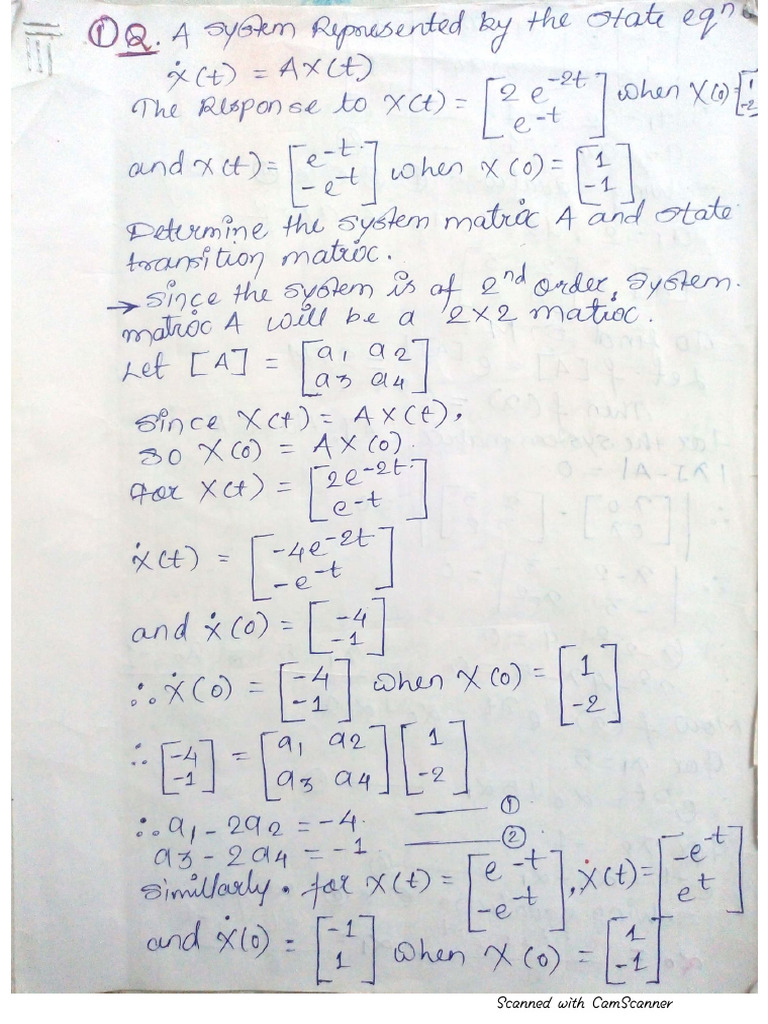 ① Q. A system Represented by the state eqn
ẋ(t) = AX(t)
The Response to X(t) = [2 e^-2t; e^-t] when X(0) = [1; -2]
and x(t) = [e^-t; -e^-t] when X(0) = [1; -1]
Determine the system matrix A and state
transition matrix.
→ Since the system is of 2nd order, system
matrix A will be a 2×2 matrix.
Let [A] = [a1 a2; a3 a4]
Since Ẋ(t) = AX(t),
so Ẋ(0) = AX(0).
for X(t) = [2e^-2t; e^-t]
ẋ(t) = [-4e^-2t; -e^-t]
and ẋ(0) = [-4; -1]
∴ Ẋ(0) = [-4; -1] when X(0) = [1; -2]
∴ [-4; -1] = [a1 a2; a3 a4] [1; -2]
∴ a1 - 2a2 = -4 —— ①
a3 - 2a4 = -1 —— ②
Simillarly. for X(t) = [e^-t; -e^-t], ẋ(t) = [-e^-t; e^t]
and ẋ(0) = [-1; 1] when X(0) = [1; -1]
Scanned with CamScanner